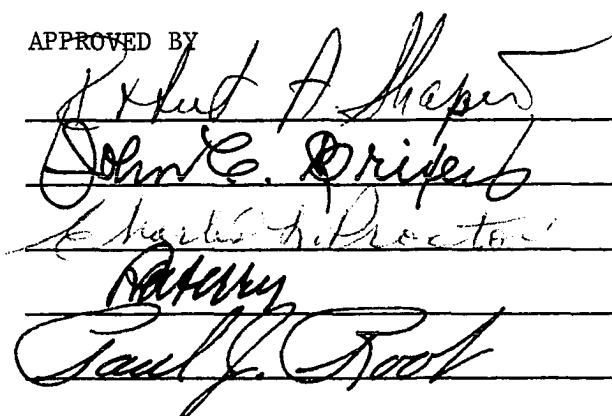 APPROVED BY
Robert A Shapiro
John C. Brixey
Charles L. Proctor
RATerry
Paul J. Root